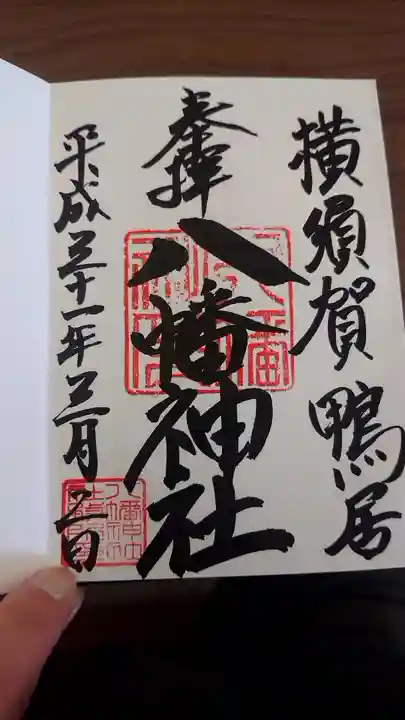 横須賀 鴨居
奉拝
八幡神社
平成三十一年三月三日